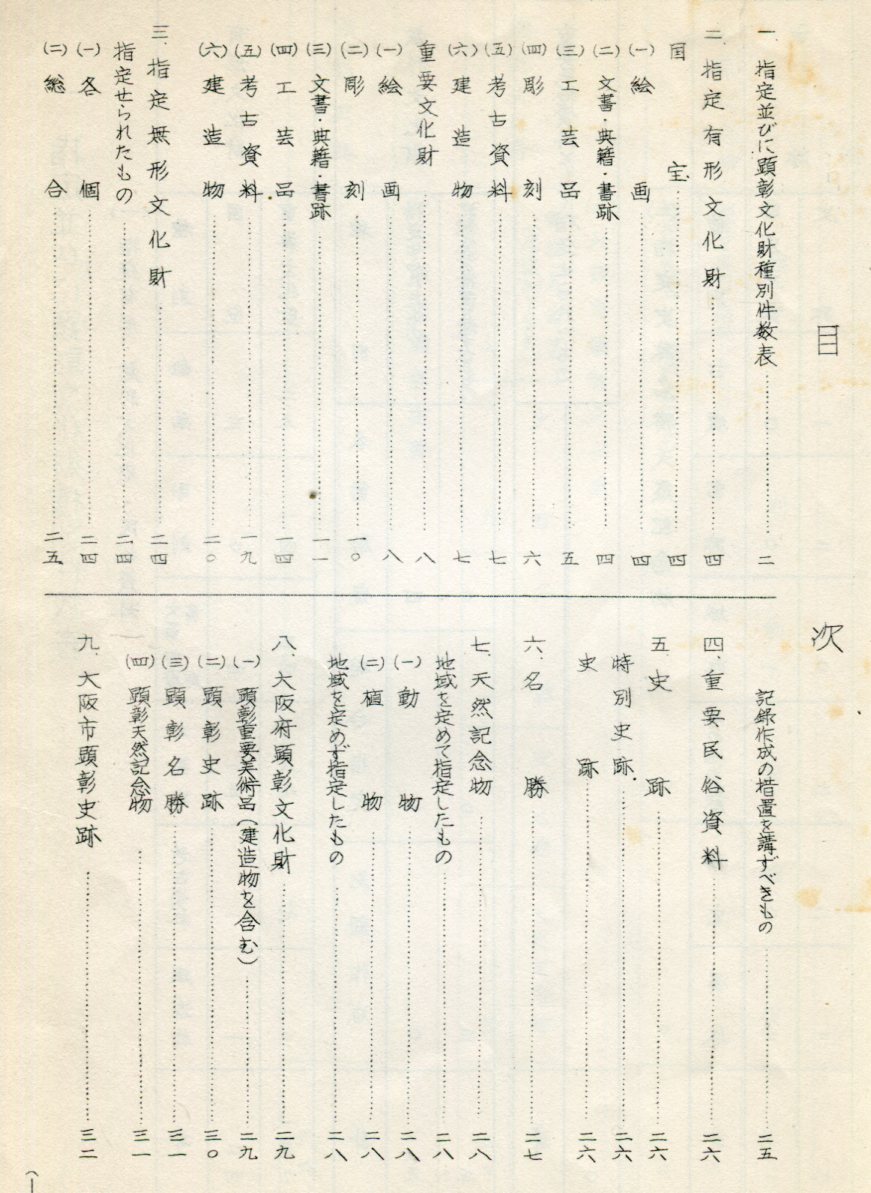 目次
一、指定並びに顕彰文化財種別件数表……二
二、指定有形文化財……四
国宝……四
(一)絵画……四
(二)文書・典籍・書跡……四
(三)工芸品……五
(四)彫刻……六
(五)考古資料……七
(六)建造物……七
重要文化財……八
(一)絵画……八
(二)彫刻……一〇
(三)文書・典籍・書跡……一一
(四)工芸品……一四
(五)考古資料……一九
(六)建造物……二〇
三、指定無形文化財……二四
指定せられたもの……二四
(一)各個……二四
(二)総合……二五
記録作成の措置を講ずべきもの……二五
四、重要民俗資料……二六
五、史跡……二六
特別史跡……二六
史跡……二六
六、名勝……二七
七、天然記念物……二八
地域を定めて指定したもの……二八
(一)動物……二八
(二)植物……二八
地域を定めず指定したもの……二八
八、大阪府顕彰文化財……二九
(一)顕彰重要美術品(建造物を含む)……二九
(二)顕彰史跡……三〇
(三)顕彰名勝……三一
(四)顕彰天然記念物……三一
九、大阪市顕彰史跡……三二